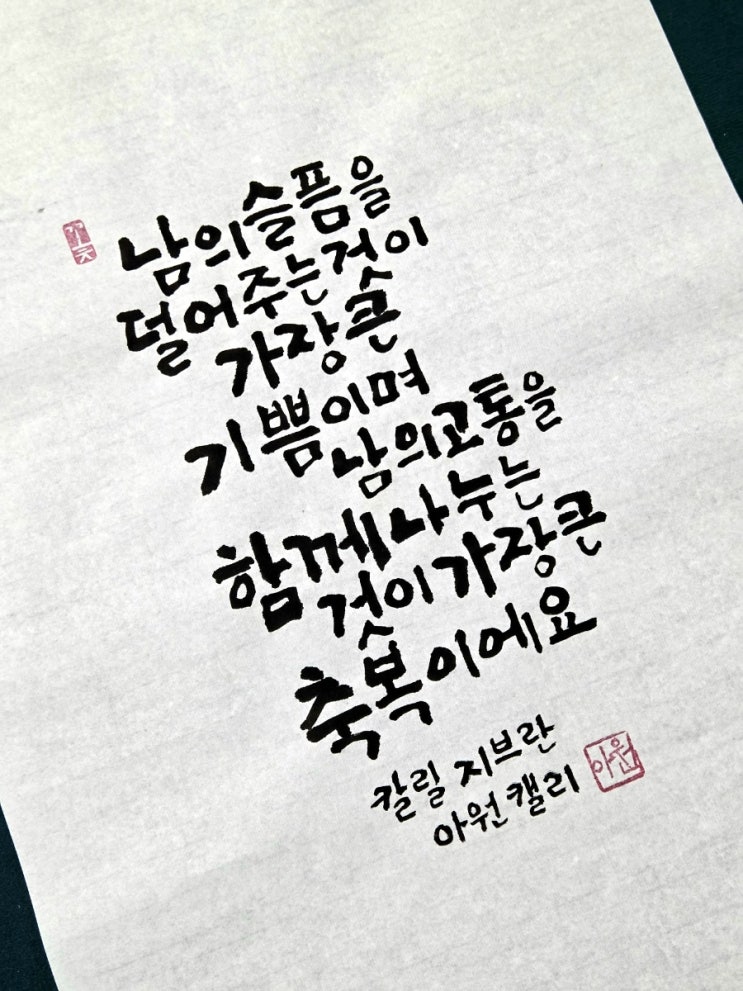 남의 슬픔을
덜어주는 것이
가장 큰
기쁨이며
남의 고통을
함께 나누는
것이 가장 큰
축복이에요
칼릴 지브란
아원캘리
아원